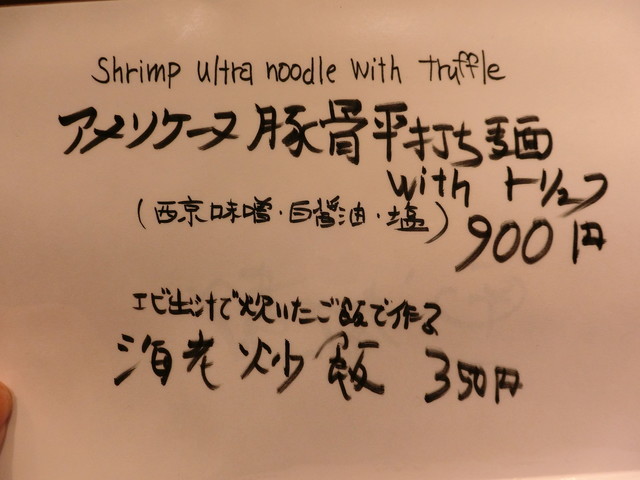 Shrimp ultra noodle with truffle
アメリケーヌ豚骨平打ち麺
with トリュフ
(西京味噌・白醤油・塩)
900円
エビ出汁で炊いたご飯で作る
海老炒飯 350円